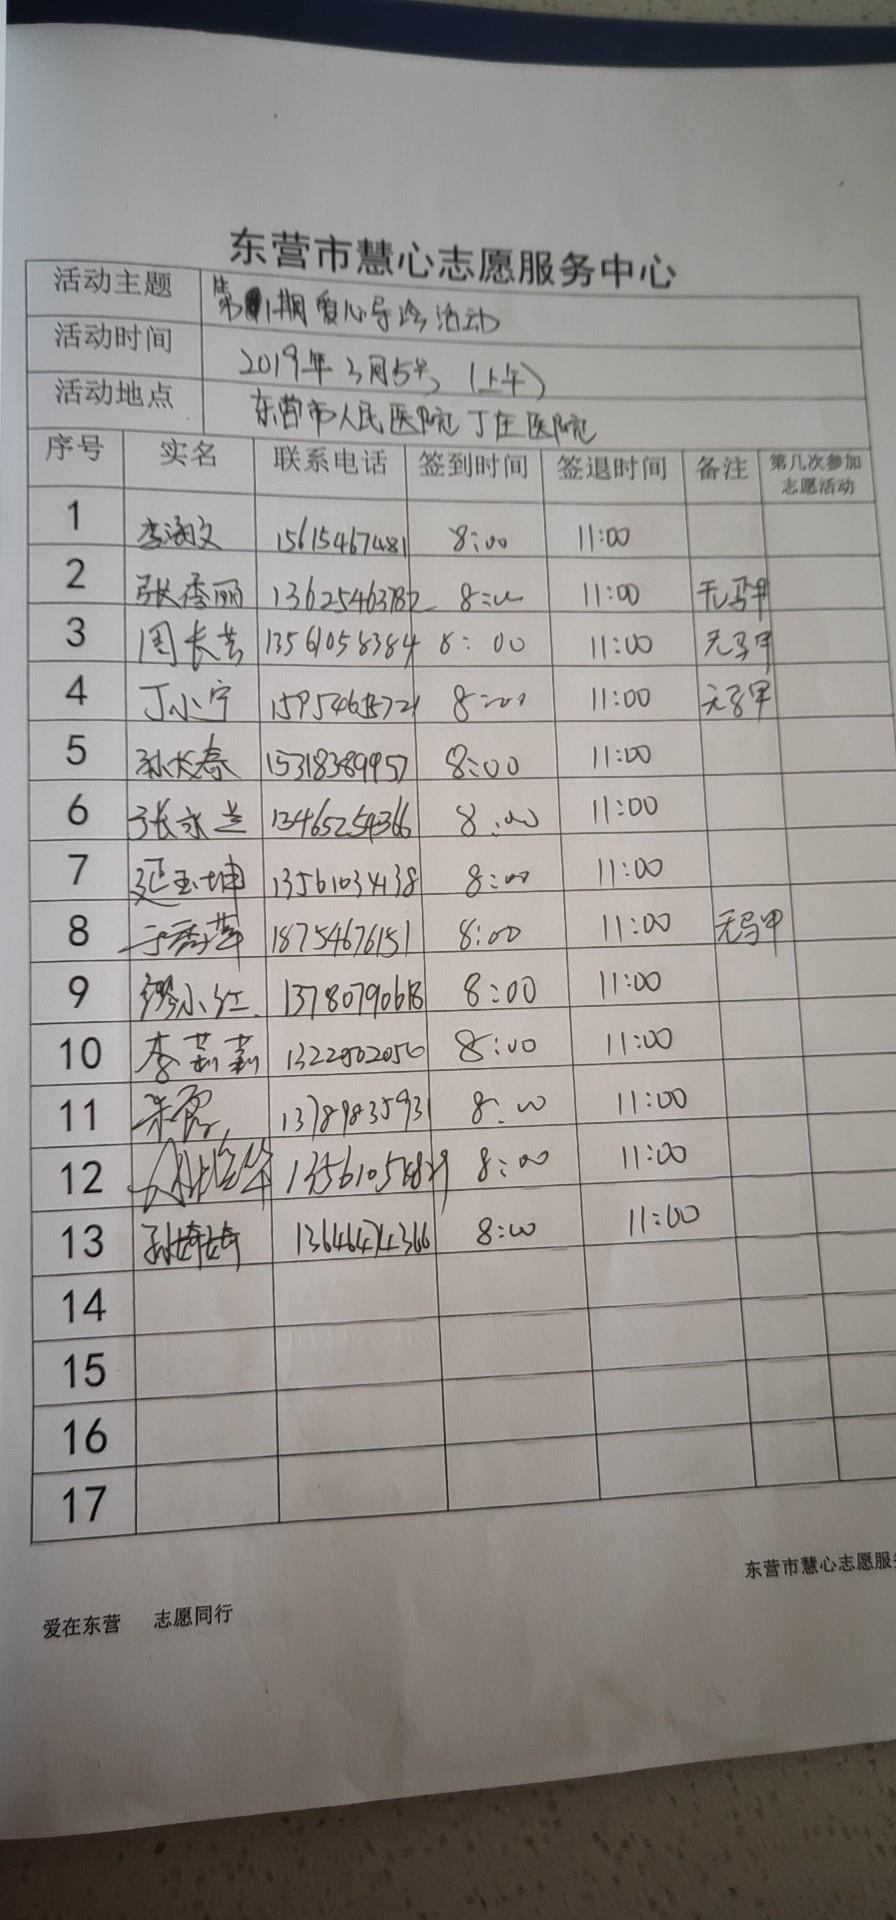 东营市慧心志愿服务中心
活动主题 第1期爱心导诊活动
活动时间 2019年3月5号(上午)
活动地点 东营市人民医院丁庄医院
序号 实名 联系电话 签到时间 签退时间 备注 第几次参加志愿活动
1 李海文 15615467481 8:00 11:00
2 张秀丽 13625463782 8:00 11:00 无马甲
3 周长芸 13561058384 8:00 11:00 无马甲
4 丁小宁 8:00 11:00 无马甲
5 孙长春 15318389957 8:00 11:00
6 张永兰 13465254366 8:00 11:00
7 延玉坤 13561034138 8:00 11:00
8 于秀萍 18754676151 8:00 11:00 无马甲
9 缪小红 13780790618 8:00 11:00
10 李莉莉 8:00 11:00
11 朱霞 13789835931 8:00 11:00
12 8:00 11:00
13 孙婷婷 13646474366 8:00 11:00
14
15
16
17
东营市慧心志愿服
爱在东营 志愿同行